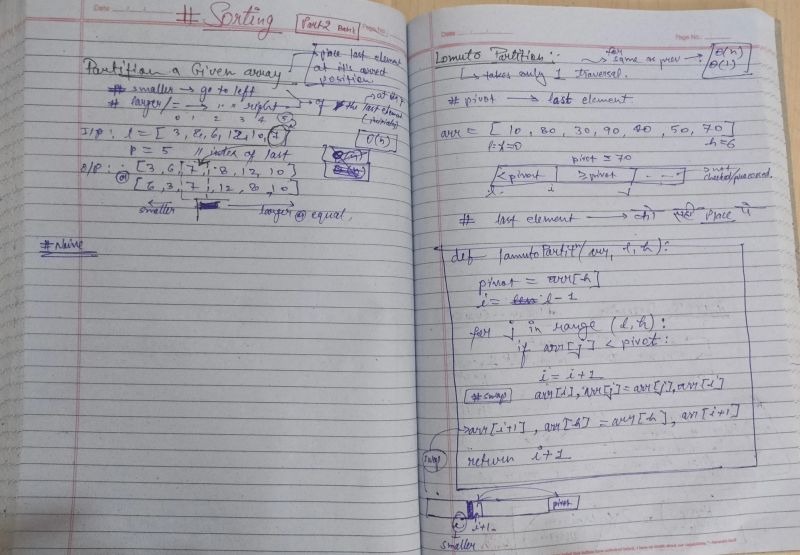 Date
# Sorting
Part 2
Page No.
Partition a Given array
place last element
at it's correct
position
# smaller → go to left
# larger/= → " " right → of the last element
(initially)
0 1 2 3 4 5
I/P: l = [3, 8, 6, 12, 10, 7]
θ(n)
P = 5 // index of last
O/P: [3, 6, 7, 8, 12, 10]
or [6, 3, 7, 12, 8, 10]
smaller larger or equal.
# Naive
Date
Page No.
Lomuto Partition:
for
same as prev
θ(n)
θ(1)
takes only 1 Traversal.
# pivot → last element
arr = [10, 80, 30, 90, 40, 50, 70]
h=6
pivot = 70
< pivot ≥ pivot ---
not
checked/processed.
l i j
# last element → को सही place पे
def lamutoPartitn(arr, l, h):
pivot = arr[h]
i = l-1
for j in range (l, h):
if arr[j] < pivot:
i = i+1
# swap arr[i], arr[j] = arr[j], arr[i]
arr[i+1], arr[h] = arr[h], arr[i+1]
swap
return i+1
pivot
i i+1
smaller